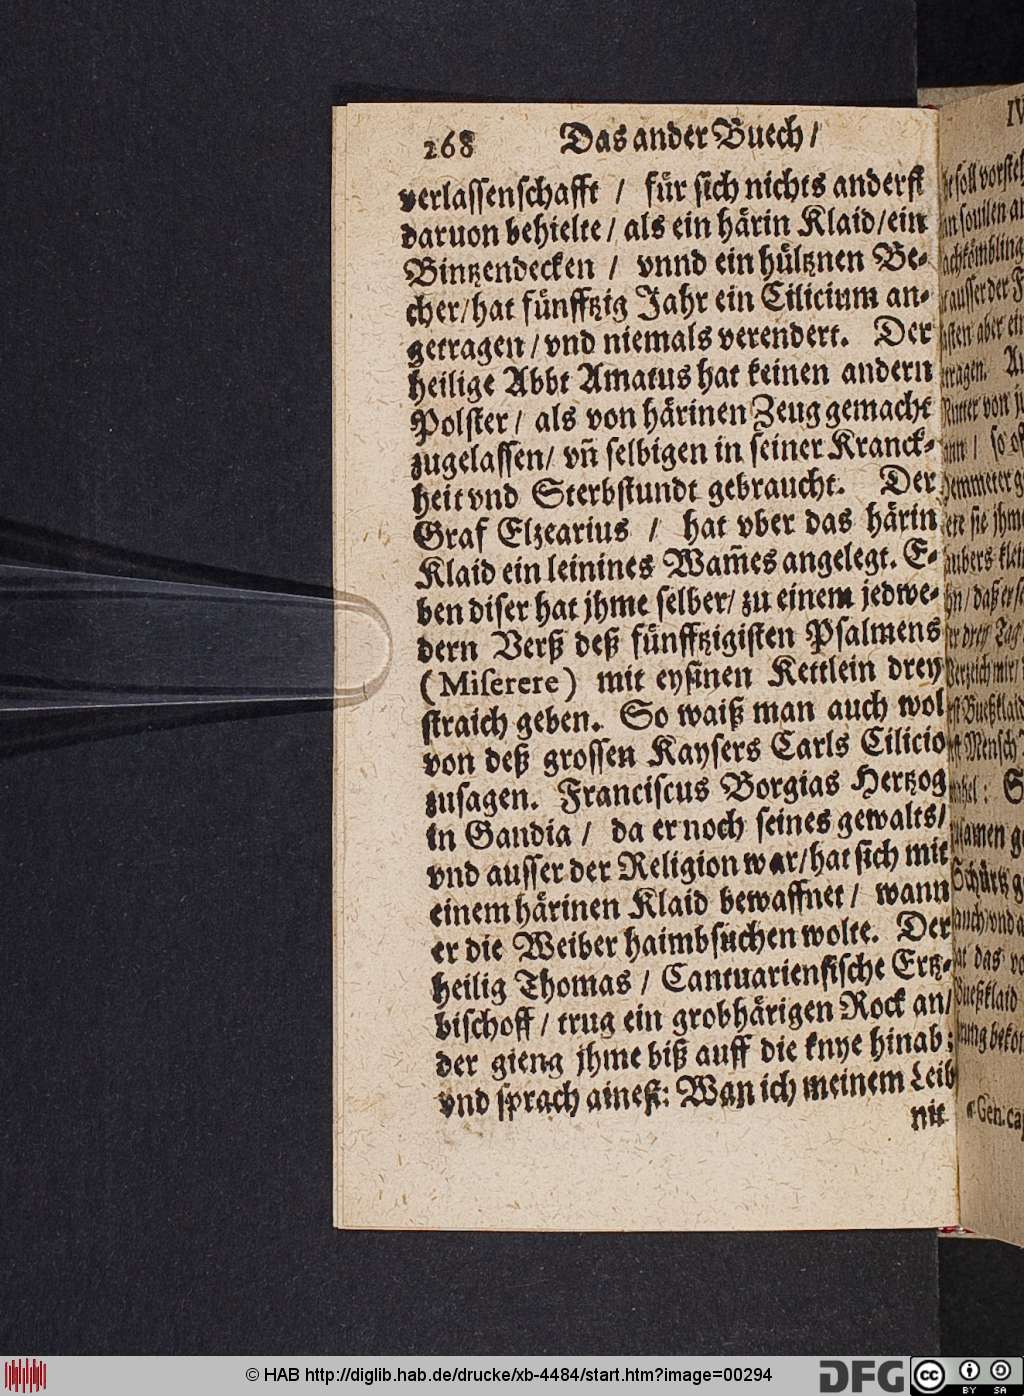 268 Das ander Buech /
verlassenschafft / für sich nichts anderst
daruon behielte / als ein härin Klaid / ein
Bintzendecken / vnnd ein hültznen Be-
cher / hat fünfftzig Jahr ein Cilicium an-
getragen / vnd niemals verendert. Der
heilige Abbt Amatus hat keinen andern
Polster / als von härinen Zeug gemacht
zugelassen / vñ selbigen in seiner Kranck-
heit vnd Sterbstundt gebraucht. Der
Graf Elzearius / hat vber das härin
Klaid ein leinines Wam̃es angelegt. E-
ben diser hat jhme selber / zu einem jedwe-
dern Verß deß fünfftzigisten Psalmens
(Miserere) mit eysinen Kettlein drey
straich geben. So waiß man auch wol
von deß grossen Kaysers Carls Cilicio
zusagen. Franciscus Borgias Hertzog
in Gandia / da er noch seines gewalts /
vnd ausser der Religion war / hat sich mit
einem härinen Klaid bewaffnet / wann
er die Weiber haimbsuchen wolte. Der
heilig Thomas / Cantuariensische Ertz-
bischoff / trug ein grobhärigen Rock an /
der gieng jhme biß auff die knye hinab;
vnd sprach ainest: Wan ich meinem Leib
nit
soll
aber
von
so
sie jhme
drey Tag
Mensch
das
Gen. cap
© HAB http://diglib.hab.de/drucke/xb-4484/start.htm?image=00294
DFG
cc
BY SA